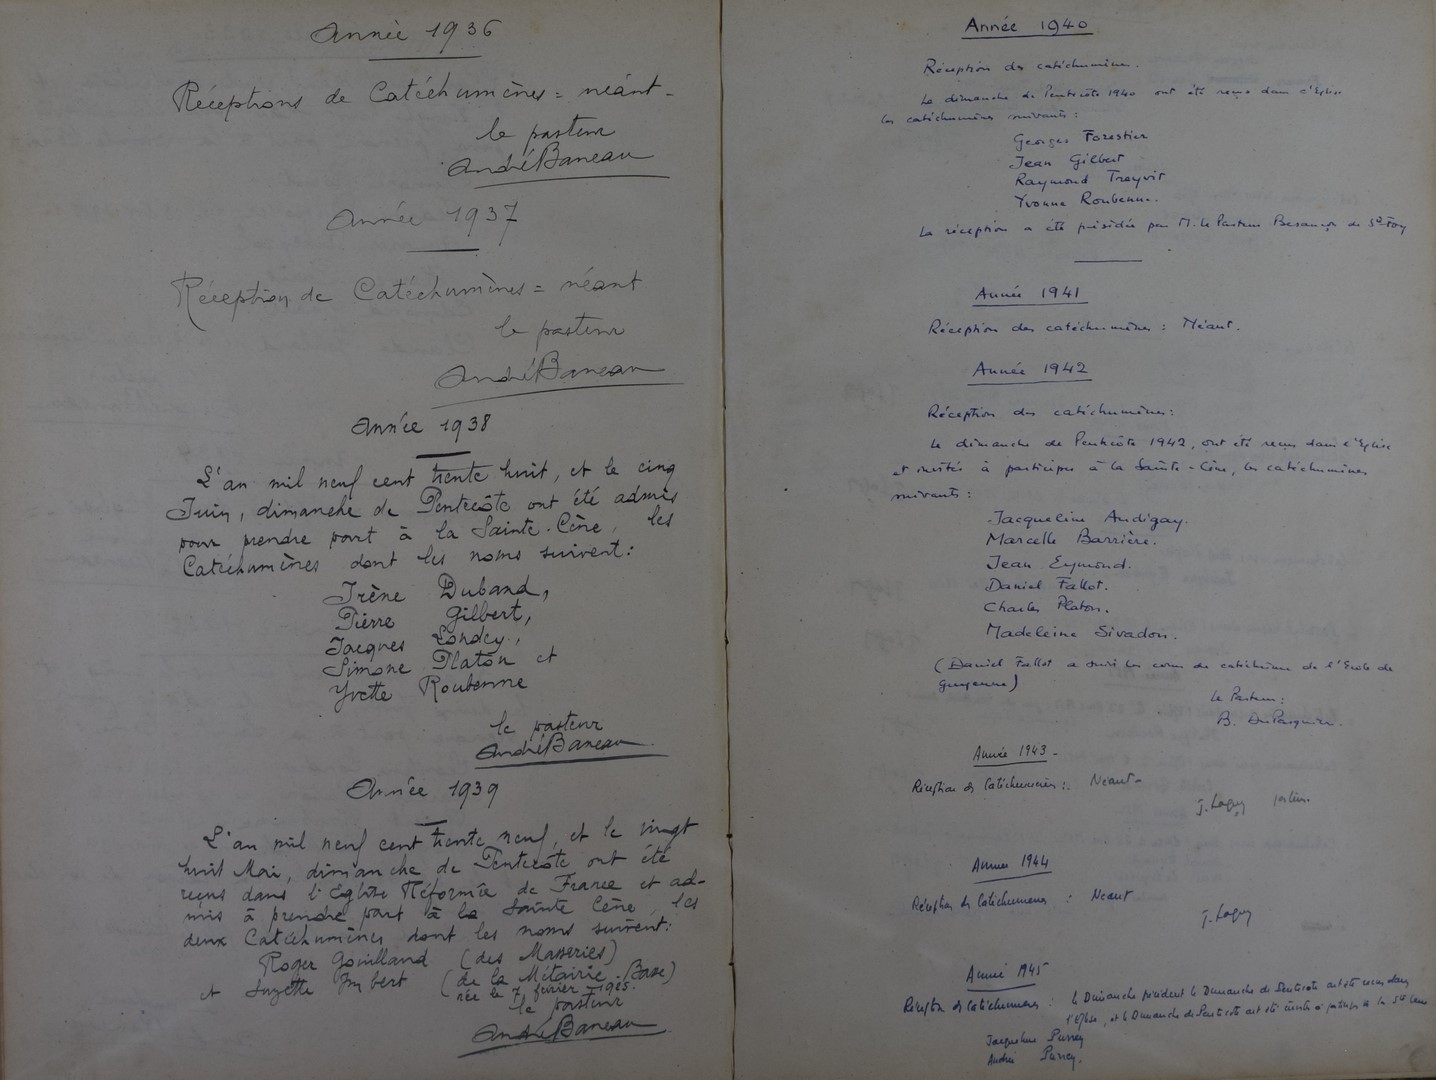 Année 1936
Réceptions de Catéchumènes = néant -
le pasteur
André Baneau
Année 1937
Réception de Catéchumènes = néant
le pasteur
André Baneau
Année 1938
L'an mil neuf cent trente huit, et le cinq
Juin, dimanche de Pentecôte ont été admis
pour prendre part à la Sainte. Cène, les
Catéchumènes dont les noms suivent :
Irène Duband,
Pierre Gilbert,
Jacques Londey,
Simone Platon et
Yvette Roubenne
le pasteur
André Baneau
Année 1939
L'an mil neuf cent trente neuf, et le vingt
huit Mai, dimanche de Pentecôte ont été
reçus dans l'Eglise Réformée de France et ad-
mis à prendre part à la Sainte Cène, les
deux Catéchumènes dont les noms suivent :
Roger Gouilland (des Masseries)
et Suzette Imbert (de la Métairie Basse)
née le 7 février 1925.
le pasteur
André Baneau
Année 1940
Réception des catéchumènes.
Le dimanche de Pentecôte 1940 ont été reçus dans l'Eglise
les catéchumènes suivants :
Georges Forestier
Jean Gilbert
Raymond Treyvit
Yvonne Roubenne.
La réception a été présidée par M. le Pasteur Besançon de Ste-Foy
Année 1941
Réception des catéchumènes : Néant.
Année 1942
Réception des catéchumènes :
Le dimanche de Pentecôte 1942, ont été reçus dans l'Eglise
et invités à participer à la Sainte-Cène, les catéchumènes
suivants :
Jacqueline Audigay.
Marcelle Barrière.
Jean Eymond.
Daniel Fallot.
Charles Platon.
Madeleine Sivadon.
(Daniel Fallot a suivi les cours de catéchisme de l'Ecole de
Guyenne)
Le Pasteur :
B. DuPasquier.
Année 1943 -
Réception des Catéchumènes : Néant -
J. Laguy
Année 1944
Réception des Catéchumènes : Néant
J. Laguy
Année 1945
Réception des Catéchumènes : le Dimanche précédent le Dimanche de Pentecôte ont été reçus dans
l'Eglise, et le Dimanche de Pentecôte ont été invités à participer à la Ste Cène
Jacqueline
Andrée